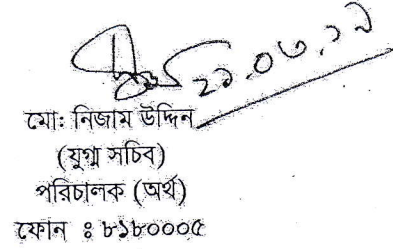 ২১.০৩.১৯
মো: নিজাম উদ্দিন
(যুগ্ম সচিব)
পরিচালক (অর্থ)
ফোন ঃ ৮১৮০০০৫